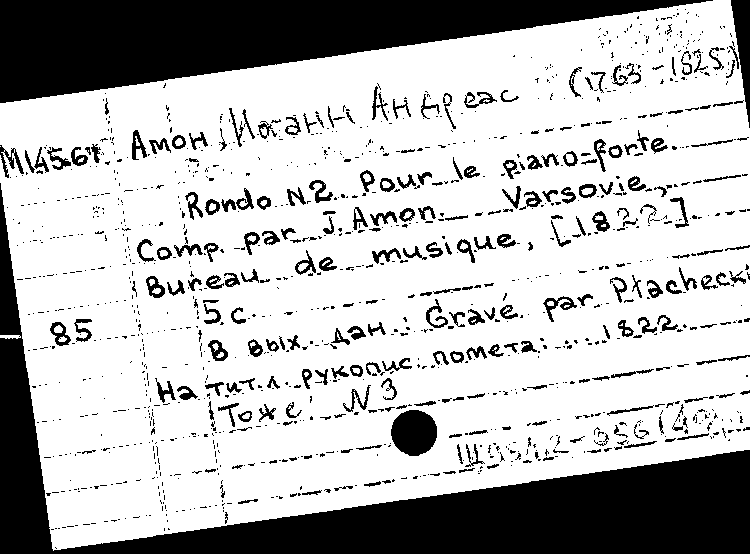 Амон, Иоганн Андреас (1763-1825)
Rondo N2. Pour le piano=forte.
Comp. par J. Amon. Varsovie,
Bureau de musique, [1822].
5 c.
85
В вых. дан.: Gravé par Płachecki
На тит. л. рукопис. помета: ... 1822.
Тоже: N3